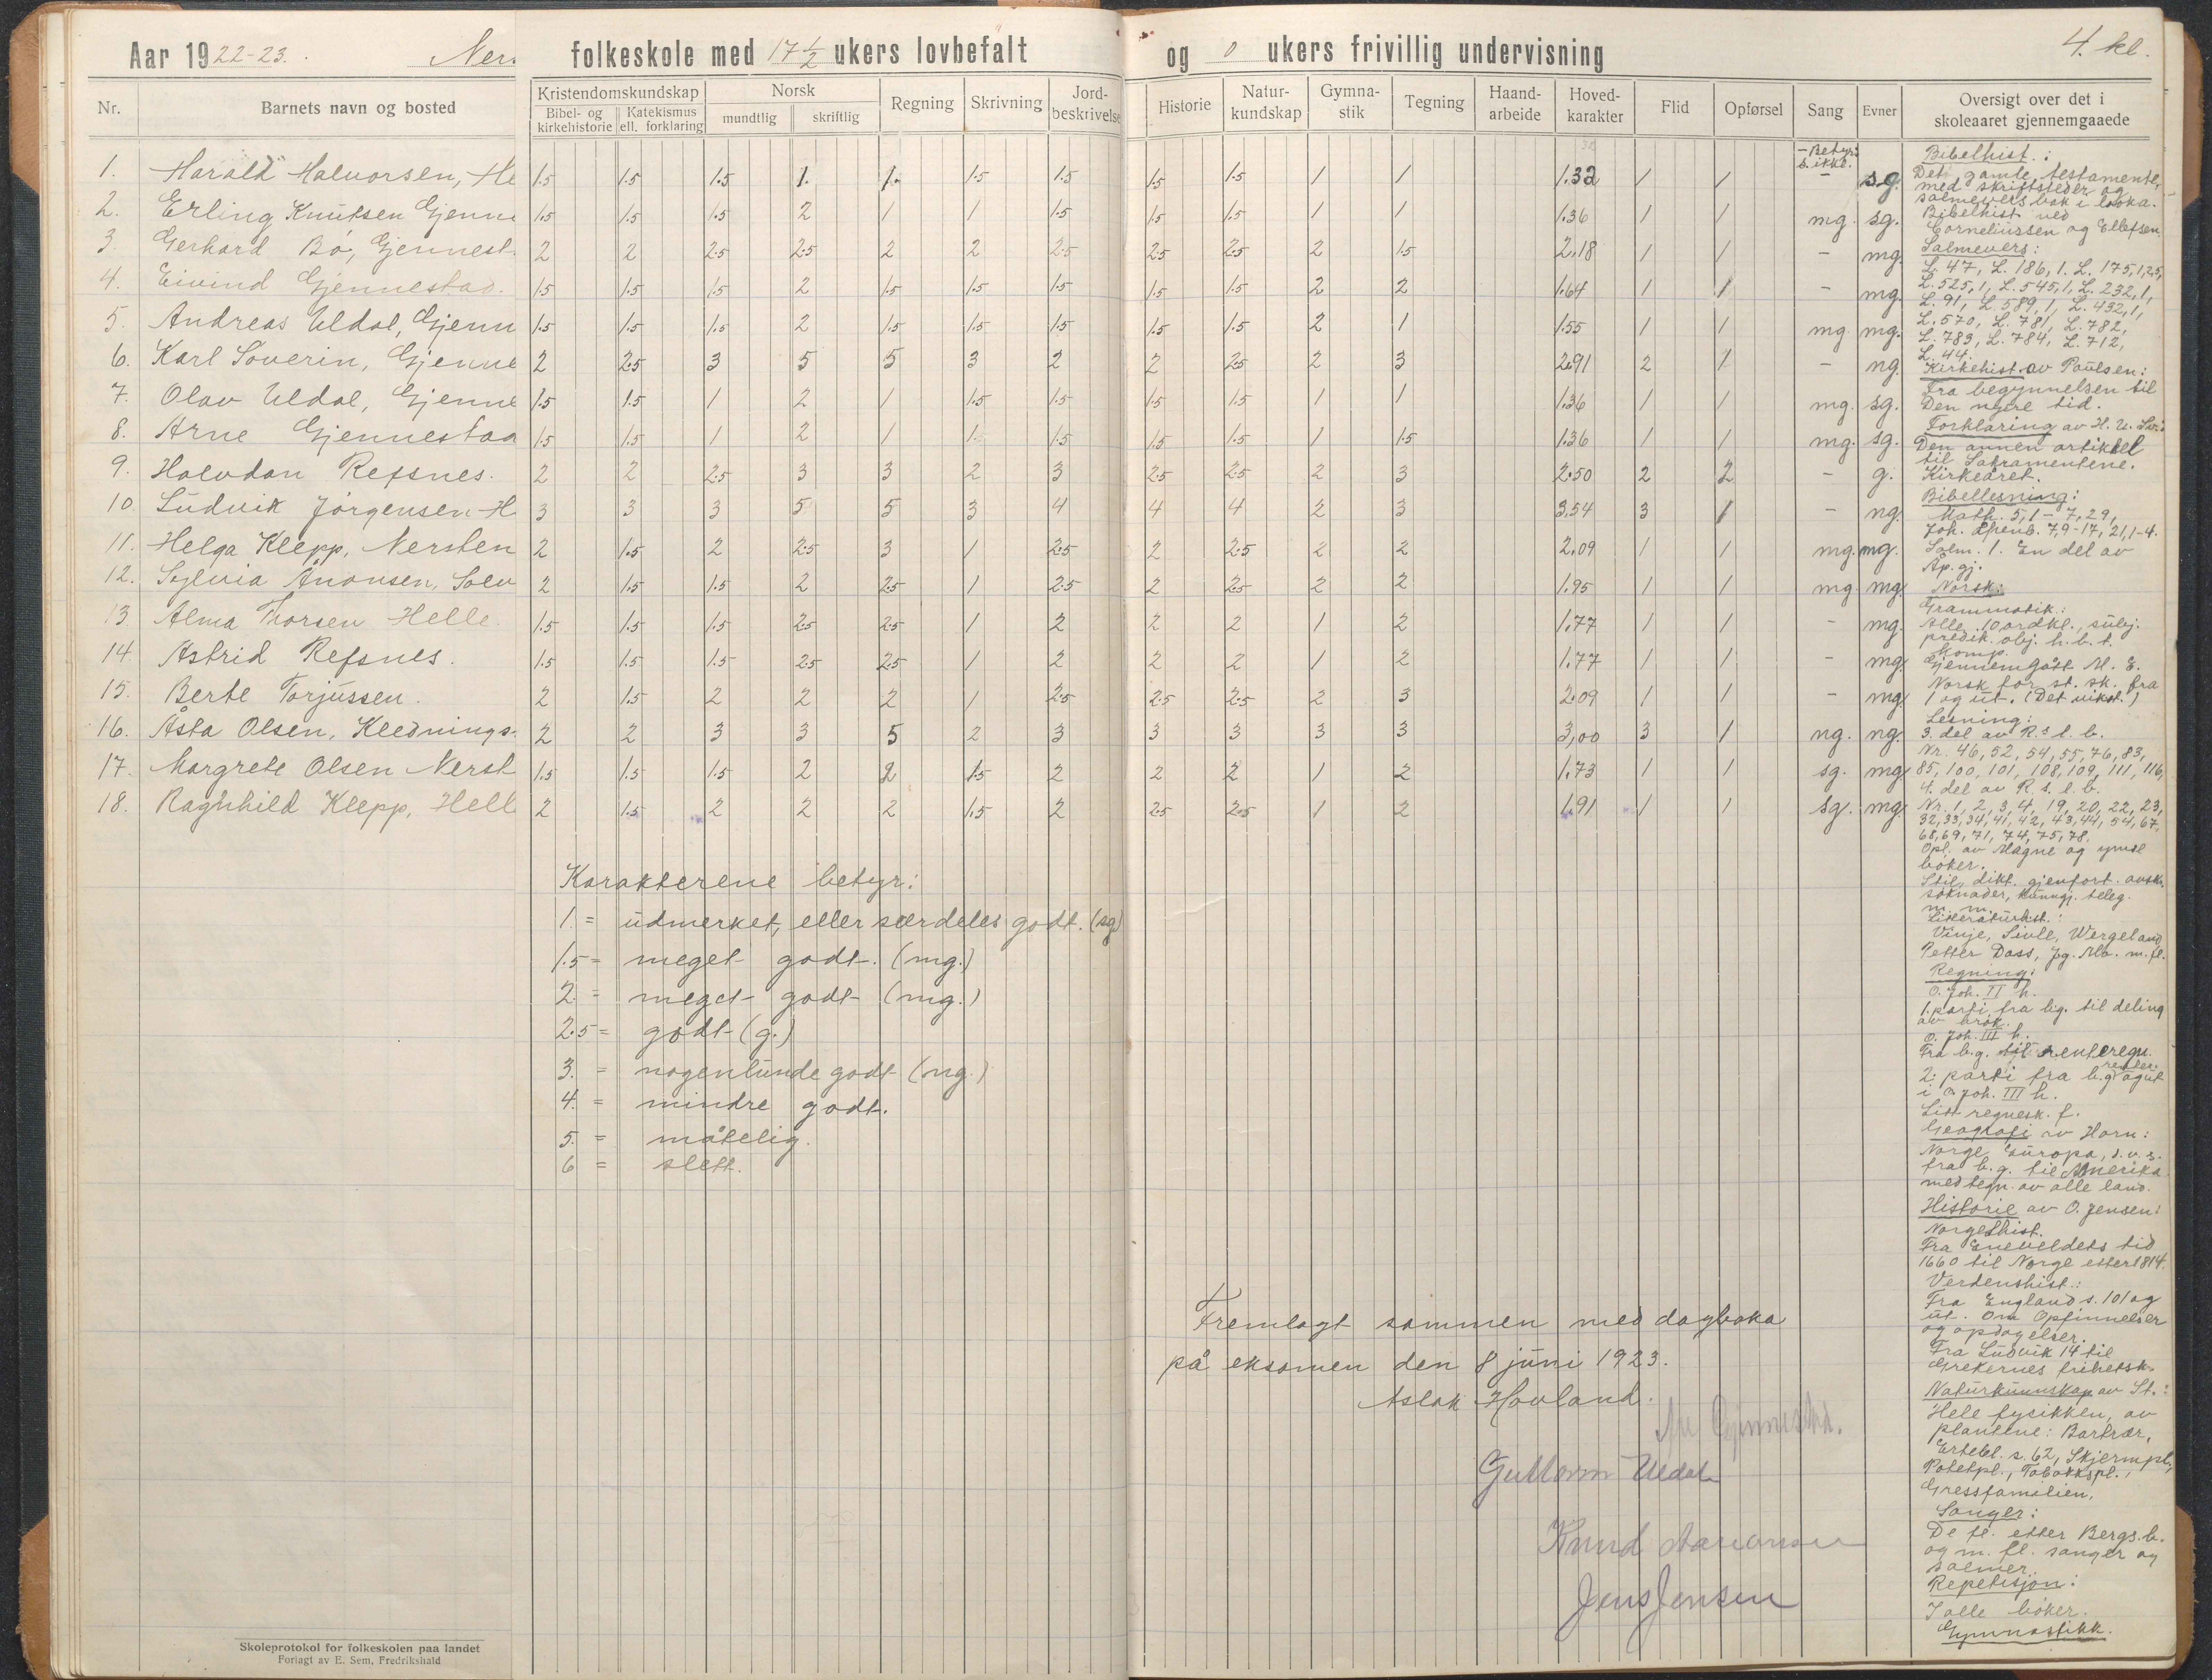 Aar 1922-23. Ner. folkeskole med 17 1/2 ukers lovbefalt og 0 ukers frivillig undervisning 4. kl.
Nr. Barnets navn og bosted Kristendomskundskap Bibel- og kirkehistorie Katekismus ell. forklaring Norsk mundtlig skriftlig Regning Skrivning Jord-beskrivelse Historie Natur-kundskap Gymna-stik Tegning Haand-arbeide Hoved-karakter Flid Opførsel Sang Evner Oversigt over det i skoleaaret gjennemgaaede
- Betyr: s. ikke.
1. Harald Halvorsen, He 1.5 1.5 1.5 1. 1. 1.5 1.5 1.5 1.5 1 1 1.32 1 1 - sg.
2. Erling Knutsen Gjenne 1.5 1.5 1.5 2 1 1 1.5 1.5 1.5 1 1 1.36 1 1 mg. sg.
3. Gerhard Bø, Gjennest. 2 2 2.5 2.5 2 2 2.5 2.5 2.5 2 1.5 2.18 1 1 - mg.
4. Eivind Gjennestad. 1.5 1.5 1.5 2 1.5 1.5 1.5 1.5 1.5 2 2 1.64 1 1 - mg.
5. Andreas Uldal, Gjenn 1.5 1.5 1.5 2 1.5 1.5 1.5 1.5 1.5 2 1 1.55 1 1 mg. mg.
6. Karl Soverin, Gjenne 2 2.5 3 5 5 3 2 2 2.5 2 3 2.91 2 1 - ng.
7. Olav Uldal, Gjenne 1.5 1.5 1 2 1 1.5 1.5 1.5 1.5 1 1 1.36 1 1 mg. sg.
8. Arne Gjennestad 1.5 1.5 1 2 1 1. 1.5 1.5 1.5 1 1.5 1.36 1 1 mg. sg.
9. Halvdan Refsnes. 2 2 2.5 3 3 2 3 2.5 2.5 2 3 2.50 2 2 - g.
10. Ludvik Jørgensen-H. 3 3 3 5 5 3 4 4 4 2 3 3.54 3 1 - ng.
11. Helga Klepp, Nersten 2 1.5 2 2.5 3 1 2.5 2 2.5 2 2 2.09 1 1 mg. mg.
12. Sylvia Ånonsen, Solv 2 1.5 1.5 2 2.5 1 2.5 2 2.5 2 2 1.95 1 1 mg mg.
13. Alma Thorsen Helle. 1.5 1.5 1.5 2.5 2.5 1 2 2 2 1 2 1.77 1 1 - mg.
14. Astrid Refsnes. 1.5 1.5 1.5 2.5 2.5 1 2 2 2 1 2 1.77 1 1 - mg.
15. Berte Torjussen. 2 1.5 2 2 2 1 2.5 2.5 2.5 2 3 2.09 1 1 - mg.
16. Åsta Olsen, Klednings- 2 2 3 3 5 2 3 3 3 3 3 3,00 3 1 ng. ng.
17. Margrete Olsen Nerst 1.5 1.5 1.5 2 2 1.5 2 2 2 1 2 1.73 1 1 sg. mg.
18. Ragnhild Klepp, Hell 2 1.5 2 2 2 1.5 2 2.5 2.5 1 2 1.91 1 1 sg. mg.
Karakterene betyr:
1. = udmerket, eller særdeles godt. (sg)
1.5 = meget godt. (mg.)
2. = meget godt (mg.)
2.5 = godt (g.)
3. = nogenlunde godt (ng.)
4. = mindre godt.
5. = måtelig.
6 = slett.
Fremlagt sammen med dagboka
på eksamen den 8 juni 1923.
Aslak Hovland.
Gjennestad.
Guttorm Uldal
Knud Aanonsen
Jens Jensen
Bibelhist.:
Det gamle testamente,
med skriftsteder og
salmevers bak i boka.
Bibelhist ved
Corneliussen og Ellefsen.
Salmevers:
L. 47, L. 186, 1. L. 175, 1,2,5,
L. 525, 1, L. 545, 1, L. 232, 1,
L. 91, L. 589, 1, L. 432, 1,
L. 570, L. 781, L. 782,
L. 783, L. 784, L. 712,
L. 44.
Kirkehist. av Paulsen:
Fra begynnelsen til
Den nyere tid.
Forklaring av H. U. Sv.:
Den annen artikkel
til Sakramentene.
Kirkeåret.
Bibellesning:
Math. 5,1 - 7,29,
Joh. åpenb. 7,9-17, 21,1-4.
Salm. 1. En del av
Ap. gj.
Norsk:
Grammatik:
Alle 10 ordkl., subj.
predik. obj. h. b. t.
Komp.
Gjennemgått M. E.
Norsk for st. sk. fra
1 og ut. (Det vikst.)
Lesning:
3. del av R.s l. b.
Nr. 46, 52, 54, 55, 76, 83,
85, 100, 101, 108, 109, 111, 116,
4. del av R. s. l. b.
Nr. 1, 2, 3, 4, 19, 20, 22, 23,
32, 33, 34, 41, 42, 43, 44, 54, 67,
68, 69, 71, 74, 75, 78.
Opl. av Magne og ymse
bøker.
Stil, dikt. gjenfort. avsk.
søknader, kunngj. teleg.
m. m.
Litteraturhist.:
Vinje, Sivle, Wergeland,
Petter Dass, Jg. Mo. m. fl.
Regning:
O. Joh. II h.
1. parti fra lig. til deling
av brøk.
O. Joh. III h.
Fra b.g. til renteregn.
2. parti fra b.g og ut
i O. Joh. III h.
Litt regnesk. f.
Geografi av Horn:
Norge, Europa, d. v. s.
fra b. g. til Amerika
med tegn. av alle land.
Historie av O. Jensen:
Norgeshist.
Fra Eneveldets tid
1660 til Norge etter 1814.
Verdenshist.:
Fra England s. 101 og
ut. Om Opfinnelser
og opdagelser.
Fra Ludvik 14 til
Grekernes frihetsk.
Naturkunnskap av St.:
Hele fysikken, av
plantene: Bartrær,
Ertebl. s. 62, Skjermpl.,
Potetpl., Tobakkspl.,
Gressfamilien,
Sanger:
De fl. etter Bergs. b.
og m. fl. sanger og
salmer.
Repetisjon:
I alle bøker.
Gymnastikk.
Skoleprotokol for folkeskolen paa landet
Forlagt av E. Sem, Fredrikshald